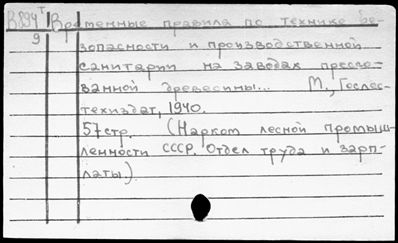 В894т Временные правила по технике бе-
9 зопасности и производственной
санитарии на заводах прессо-
ванной древесины... М., Гослес-
техиздат, 1940.
57стр. (Нарком лесной промыш-
ленности СССР. Отдел труда и зарп-
латы.).